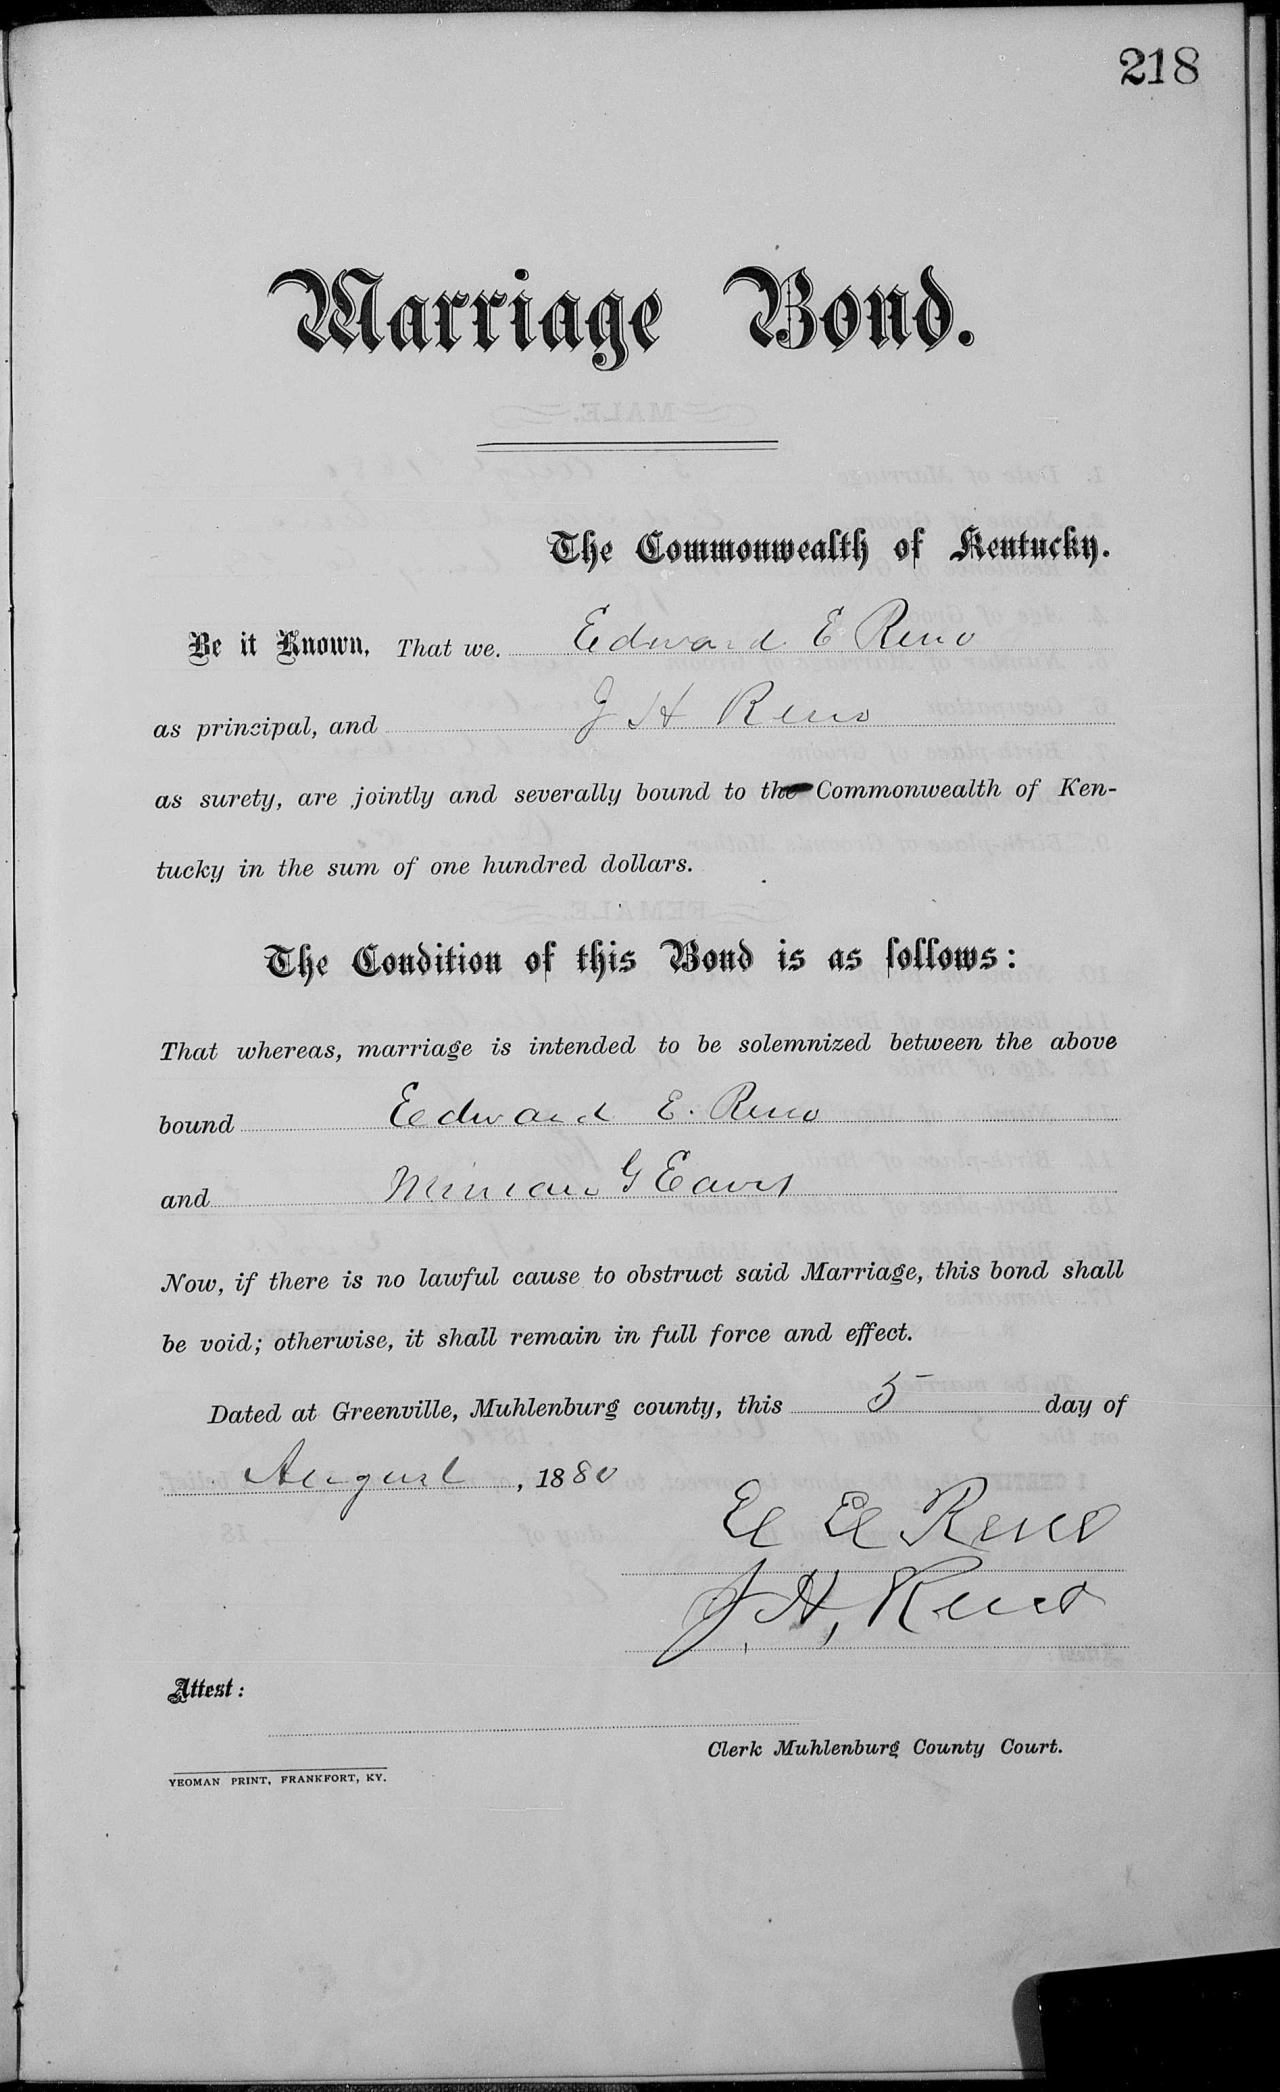 218
Marriage Bond.
The Commonwealth of Kentucky.
Be it Known, That we, Edward E Reno
as principal, and J H Reno
as surety, are jointly and severally bound to the Commonwealth of Ken-
tucky in the sum of one hundred dollars.
The Condition of this Bond is as follows:
That whereas, marriage is intended to be solemnized between the above
bound Edward E. Reno
and G Eaves
Now, if there is no lawful cause to obstruct said Marriage, this bond shall
be void; otherwise, it shall remain in full force and effect.
Dated at Greenville, Muhlenburg county, this 5 day of
August, 1880
E E Reno
J. H, Reno
Attest:
Clerk Muhlenburg County Court.
YEOMAN PRINT, FRANKFORT, KY.